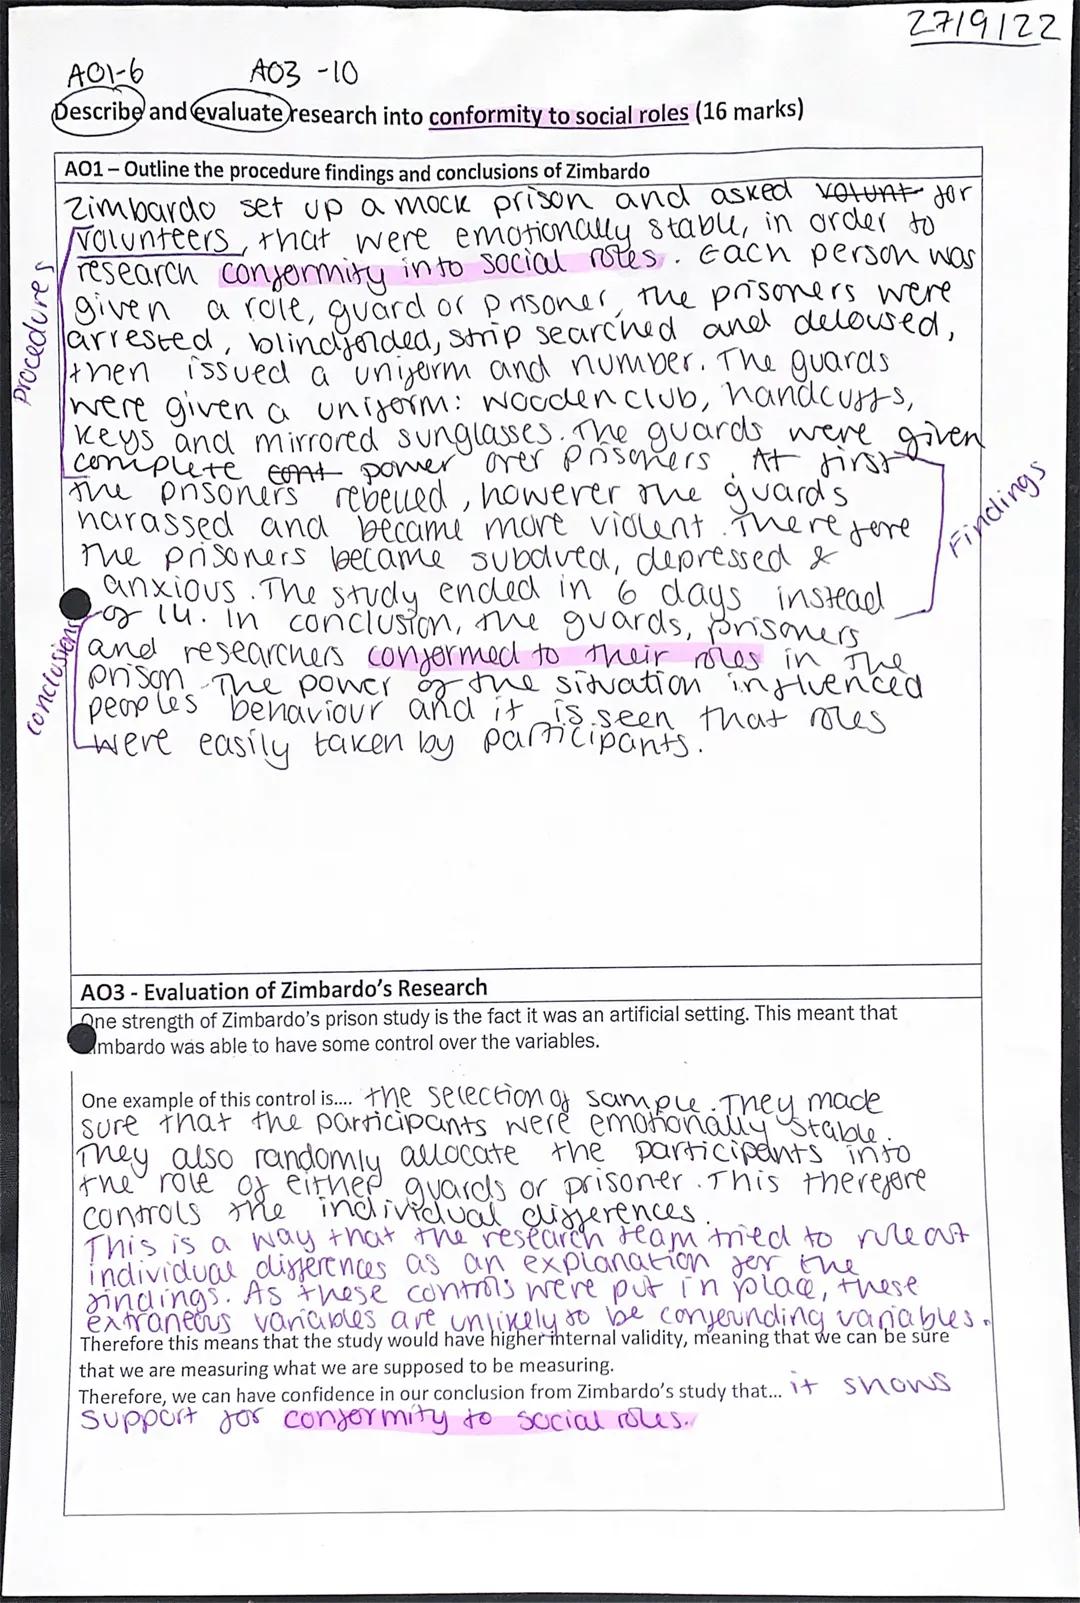 27/9/22
AO1-6 AO3 -10
Describe and evaluate research into conformity to social roles (16 marks)
AO1 – Outline the procedure findings and conclusions of Zimbardo
Zimbardo set up a mock prison and asked volunt for
volunteers, that were emotionally stable, in order to
research conformity into social roles. Each person was
given a role, guard or prisoner, the prisoners were
arrested, blindfolded, strip searched and deloused,
then issued a uniform and number. The guards
were given a uniform: wooden club, handcuffs,
keys and mirrored sunglasses. The guards were given
complete cont power over prisoners. At first
the prisoners rebelled, however the guards
harassed and became more violent. Therefore
the prisoners became subdued, depressed &
anxious. The study ended in 6 days instead
of 14. In conclusion, the guards, prisoners
and researchers conformed to their roles in the
prison. The power of the situation influenced
peoples behaviour and it is seen that roles
were easily taken by participants.
procedures
Findings
conclusions
AO3 - Evaluation of Zimbardo's Research
One strength of Zimbardo's prison study is the fact it was an artificial setting. This meant that
mbardo was able to have some control over the variables.
One example of this control is.... the selection of sample. They made
sure that the participants were emotionally stable.
They also randomly allocate the participants into
the role of either guards or prisoner. This therefore
controls the individual differences.
This is a way that the research team tried to rule out
individual differences as an explanation for the
findings. As these controls were put in place, these
extraneous variables are unlikely to be confounding variables.
Therefore this means that the study would have higher internal validity, meaning that we can be sure
that we are measuring what we are supposed to be measuring.
Therefore, we can have confidence in our conclusion from Zimbardo's study that... it shows
support for conformity to social roles.